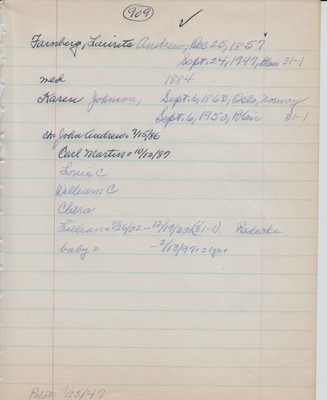 909 ✓
Farnberg, Laurits Andrew, Dec 25, 1857
Sept. 24, 1947, Blair 31-1
med 1884
Karen Johnson, Sept. 6, 1868, Oslo, Norway
Sept. 6, 1950, Blair 31-1
ch. John Andrew 7/15/86
Carl Martin 10/12/87
Louis C
William C
Clara
Lillian - 12/19/20 (31-1)
baby - 2/13/97